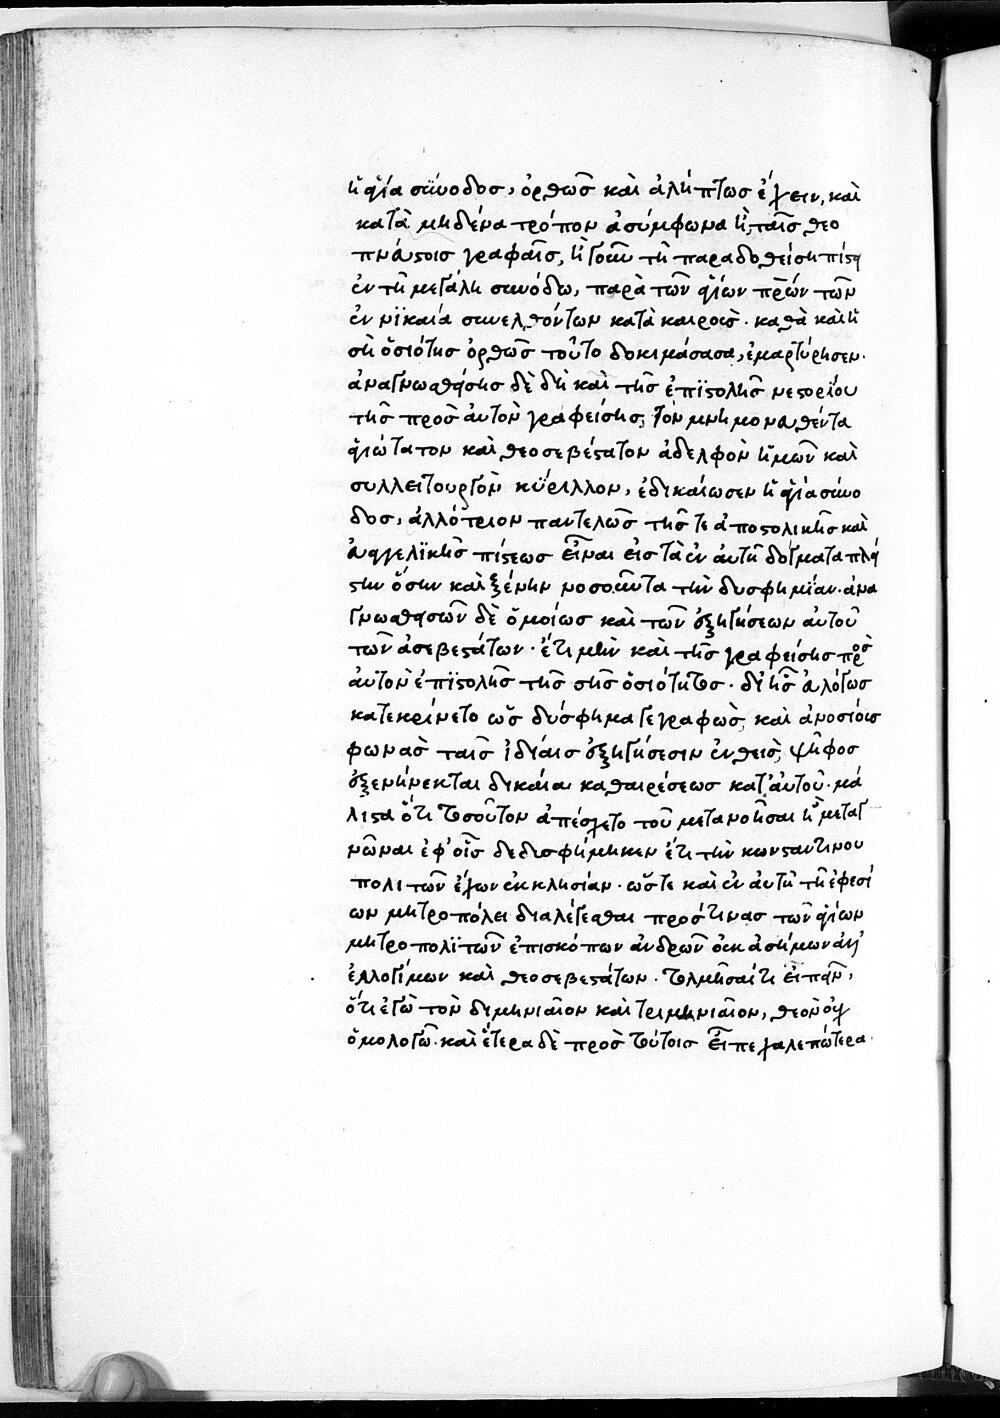 ἡ ἁγία σύνοδος, ὀρθῶς καὶ ἀλήπτως ἔχειν, καὶ
κατὰ μηδένα τρόπον ἀσύμφωνα ἢ ταῖς θεο
πνεύστοις γραφαῖς, ἢ γοῦν τῇ παραδοθείσῃ πίστει
ἐν τῇ μεγάλῃ συνόδω, παρὰ τῶν ἁγίων πρων τῶν
ἐν νϊκαία συνελθόντων κατὰ καιροὺς. καθὰ καὶ ἡ
σὴ ὁσιότης ὀρθῶς τοῦτο δοκιμάσασα, ἐμαρτύρησεν.
ἀναγνωσθείσης δὲ δὴ καὶ τῆς ἐπϊστολῆς νεστορΐου
τῆς πρὸς αὐτὸν γραφείσης, τὸν μνημονευθέντα
ἁγιώτατον καὶ θεοσεβέστατον ἀδελφὸν ἡμῶν καὶ
συλλειτουργὸν κύριλλον, ἐδικαίωσεν ἡ ἁγία σύνο
δος, ἀλλότριον παντελῶς τῆς τε ἀποστολικῆς καὶ
εὐαγγελϊκῆς πίστεως εἶναι εἰς τὰ ἐν αὐτῇ δόγματα πλεί
στην ὅσην καὶ ξένην νοσοῦντα τὴν δυσφημΐαν. ἀνα
γνωσθεισῶν δὲ ὁμοίως καὶ τῶν ἐξηγήσεων αὐτοῦ
τῶν ἀσεβεστάτων. ἔτι μὴν καὶ τῆς γραφείσης πρὸς
αὐτὸν ἐπϊστολῆς τῆς σῆς ὁσιότητος. δι ἧς εὐλόγως
κατεκρίνετο ὡς δύσφημα γεγραφὼς, καὶ ἀνοσίους
φωνὰς ταῖς ἰδίαις ἐξηγήσεσιν ἐνθεὶς, ψῆφος
ἐξενήνεκται δικαία καθαιρέσεως κατ' αὐτοῦ. μά
λιστα ὅτι τοσοῦτον ἀπέσχετο τοῦ μετανοῆσαι ἢ μεταγ
νῶναι ἐφ' οἷς δεδισφήμηκεν ἔτι τὴν κωνσαντινου
πολιτῶν ἔχων ἐκκλησίαν. ὥστε καὶ ἐν αὐτῇ τῇ ἐφεσί
ων μητροπόλει διαλέγεσθαι πρός τινας τῶν ἁγίων
μητροπολϊτῶν ἐπισκόπων ἀνδρῶν οὐκ ἀσήμων ἀλλ'
ἐλλογίμων καὶ θεοσεβεστάτων. τολμῆσαί τι εἰπεῖν,
ὅτι ἐγὼ τὸν διμηνιαῖον καὶ τριμηνιαῖον, θεὸν οὐχ
ὁμολογῶ. καὶ ἕτερα δὲ πρὸς τούτοις εἶπε χαλεπώτερα.